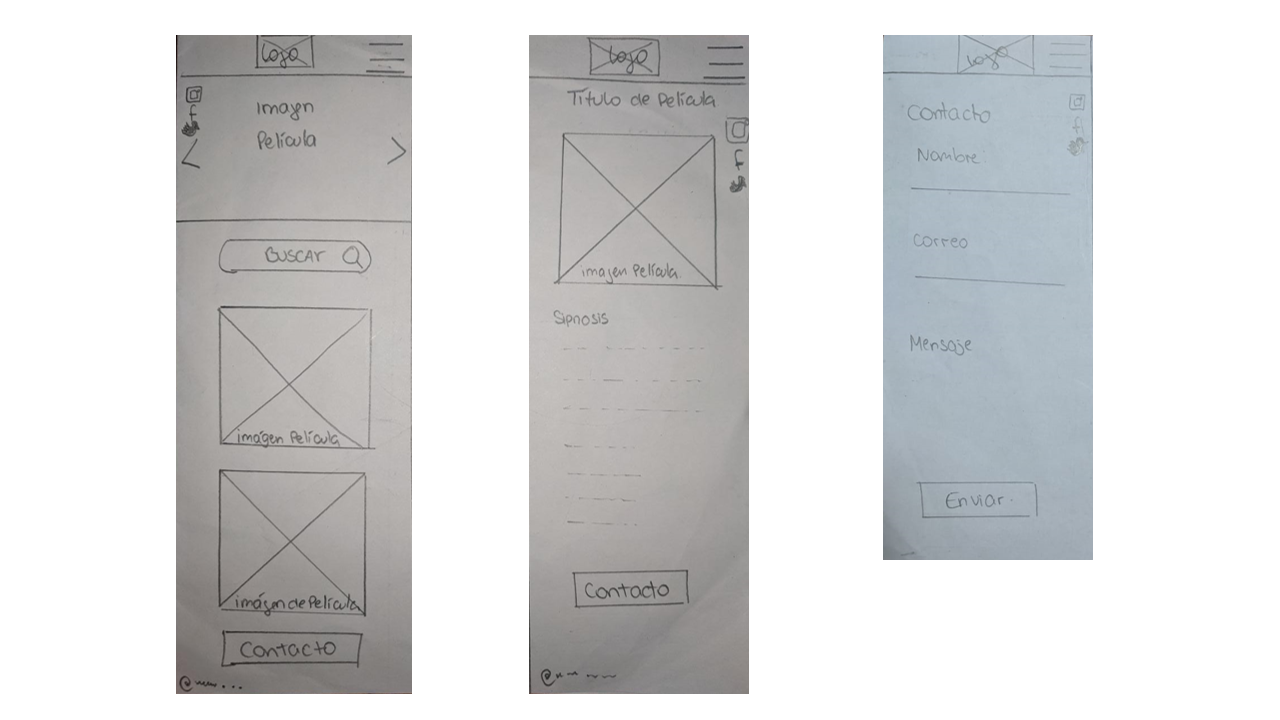 Logo
Imagen
Película
BUSCAR
imágen Película
imágen de Película
Contacto
@
Logo
Título de Película
f
imagen Película.
Sipnosis
Contacto
@
Logo
Contacto
f
Nombre
Correo
Mensaje
Enviar.